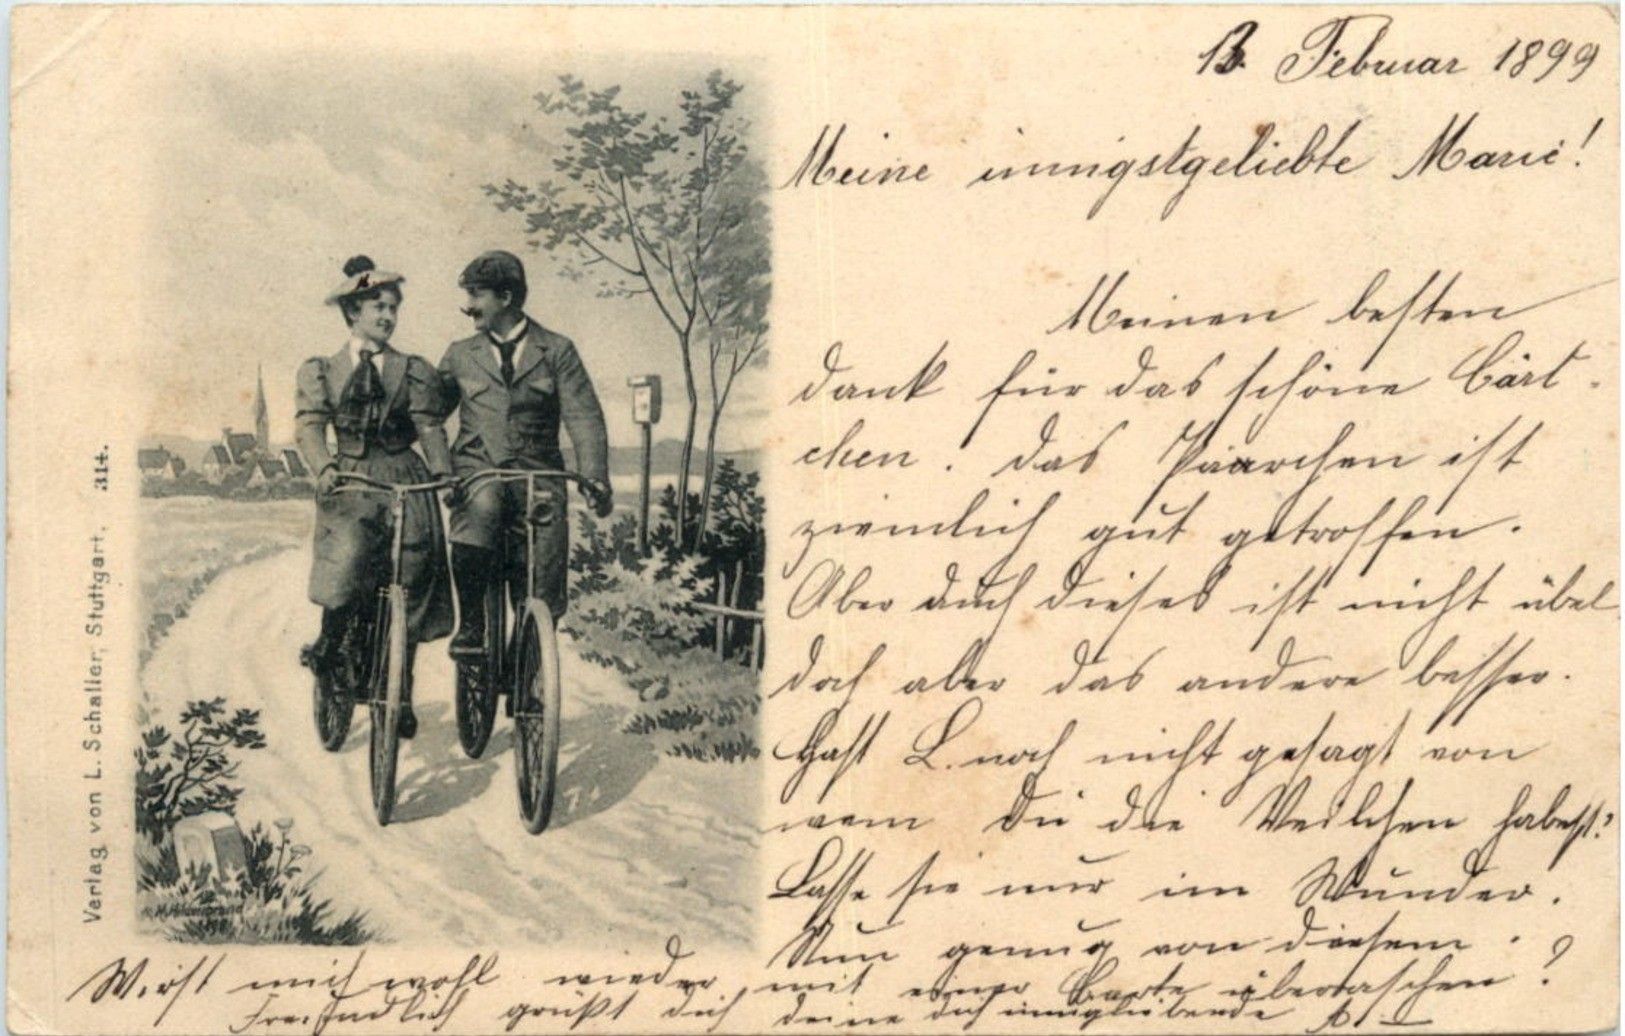 13. Februar 1899
Meine innigstgeliebte Marie!
Meinen besten
dank für das schöne Cärt-
chen. das Päarchen ist
ziemlich gut getroffen.
Aber auch dieses ist nicht übel
doch aber das andere besser.
Hast L. noch nicht gesagt von
wem Du die Veilchen habest?
Lasse sie nur im Wunder.
Nun genug von diesem.
Wirst mich wohl wieder mit einer Carte überraschen?
Freundlich grüßt dich deine dich innigliebende
Verlag von L. Schaller, Stuttgart. 314.